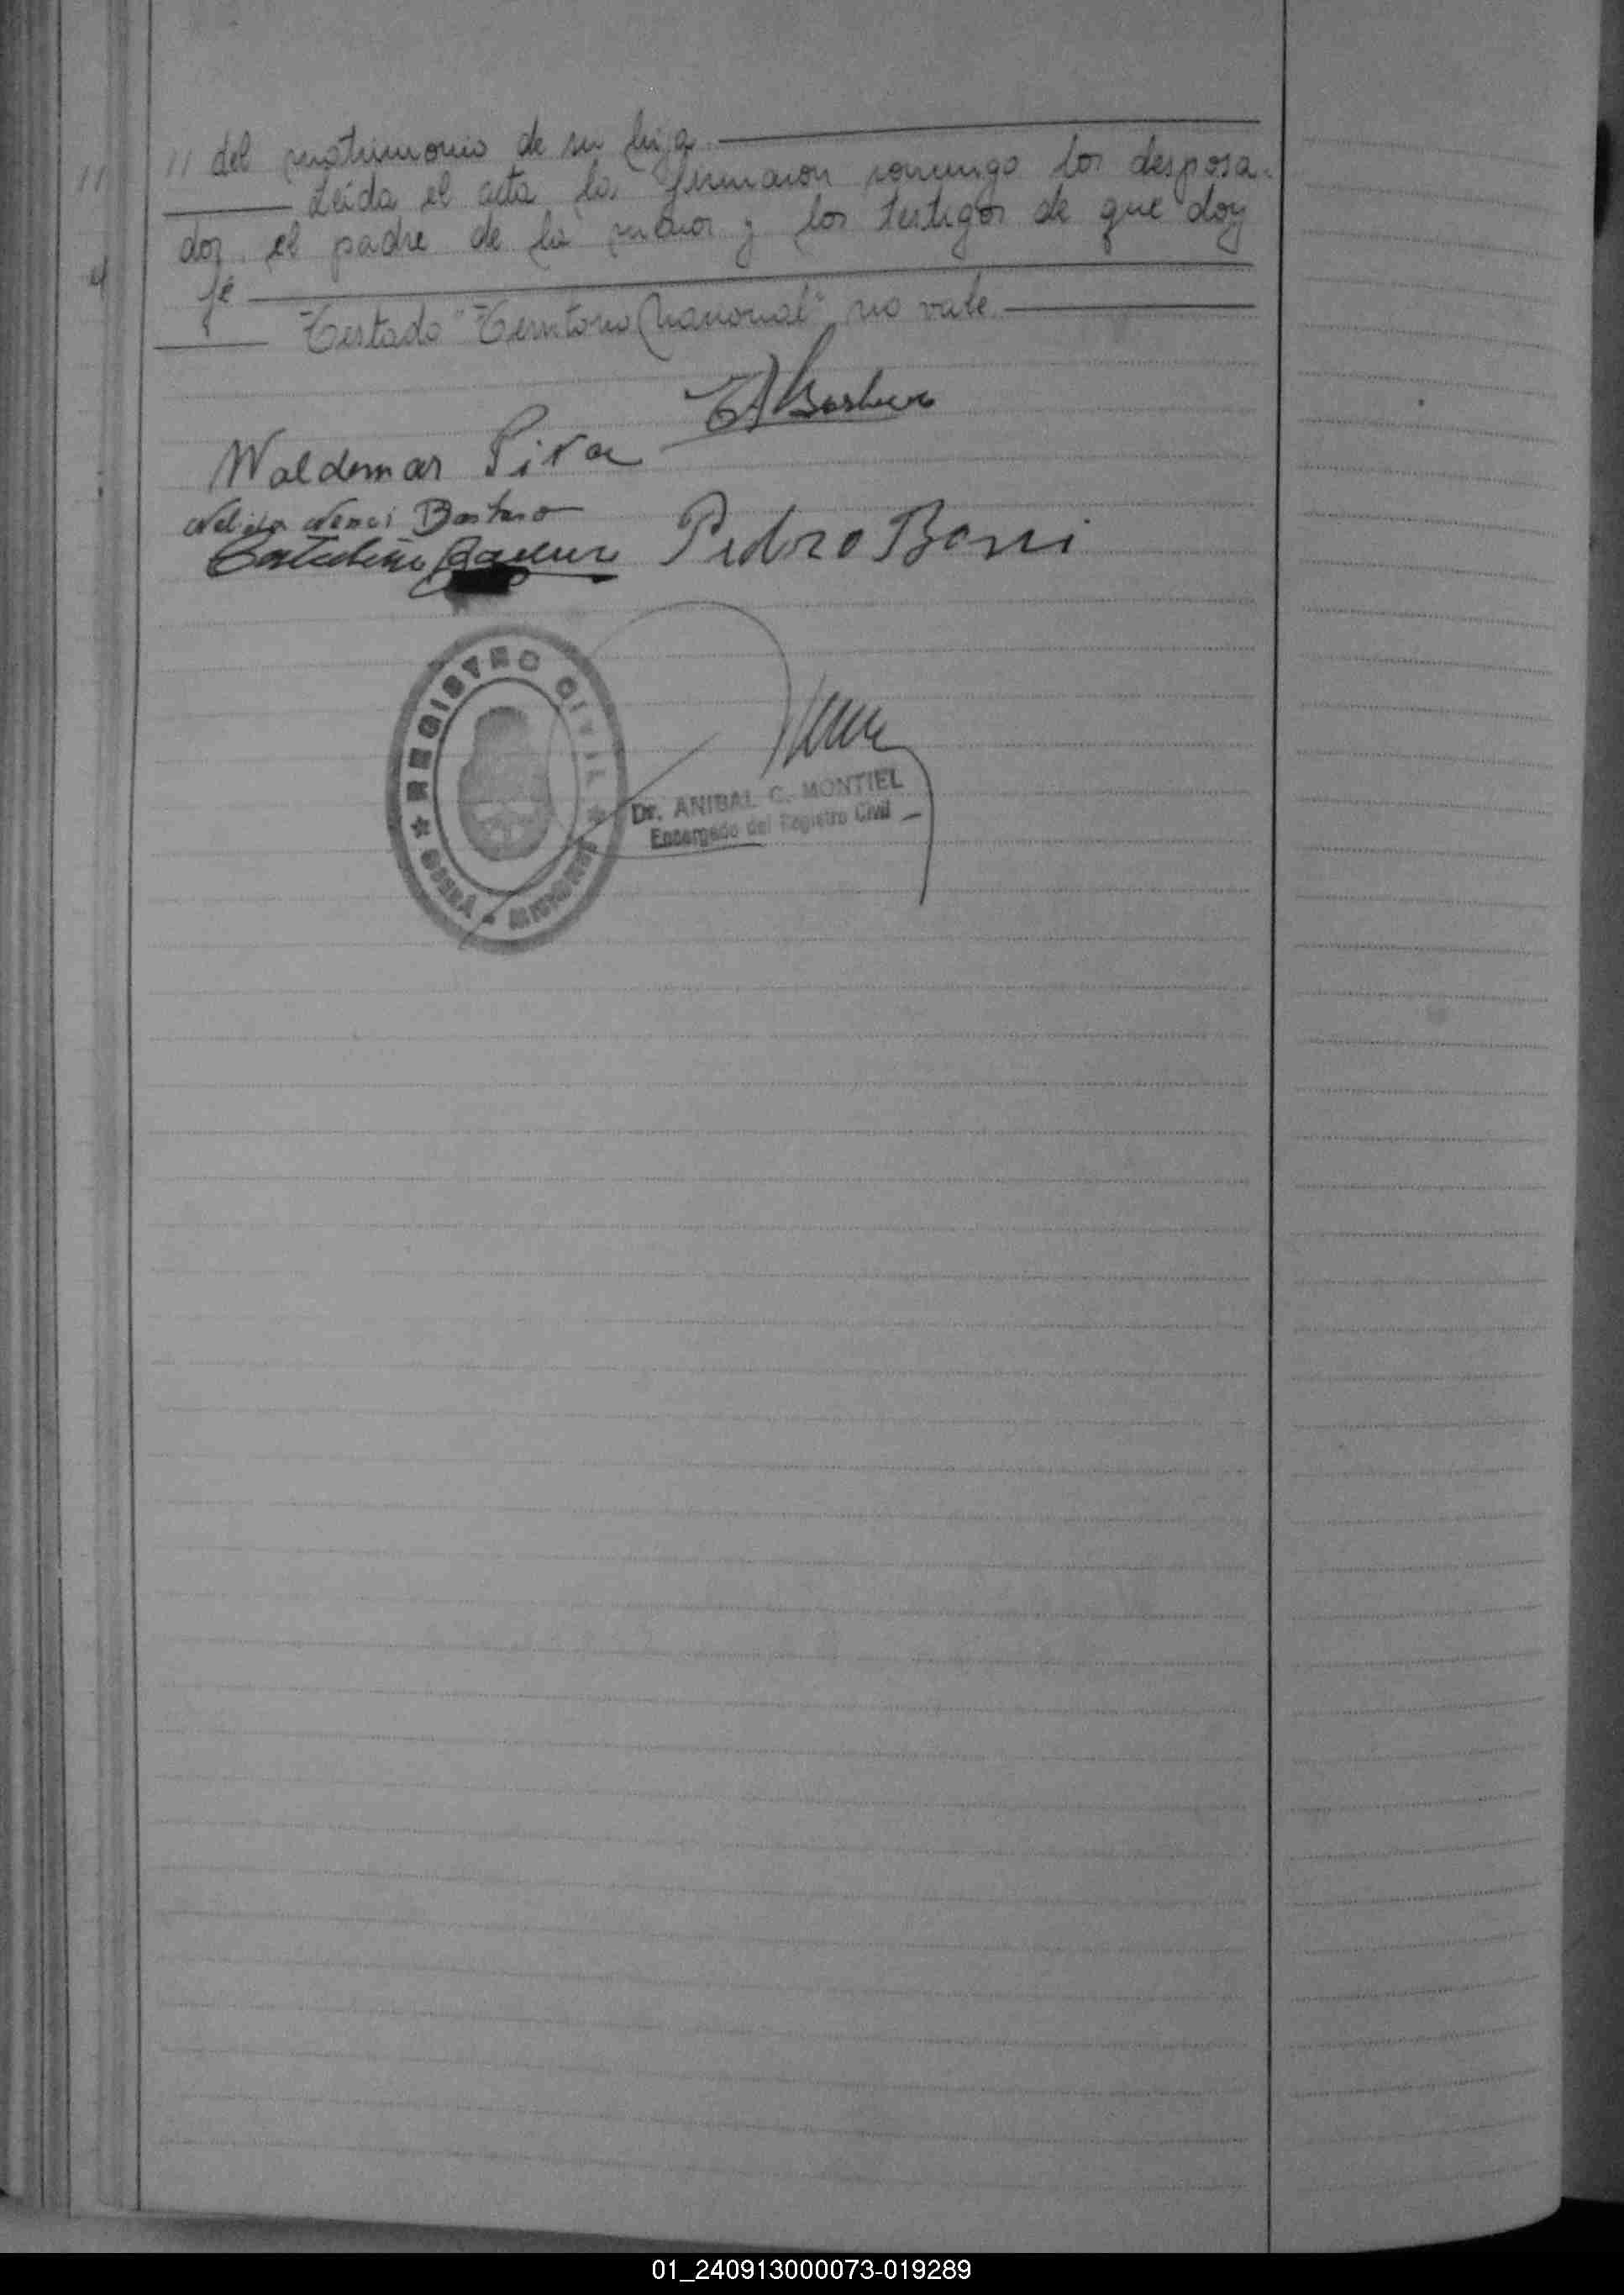 // del matrimonio de su hija.
Leída el acta la firmaron conmigo los desposa-
dos, el padre de la menor y los testigos de que doy
fé
Testado "Territorio Nacional" no vale.
Waldemar
Pedro
REGISTRO CIVIL
OBERÁ - MISIONES
Dr. ANIBAL C. MONTIEL
Encargado del Registro Civil
01_240913000073-019289